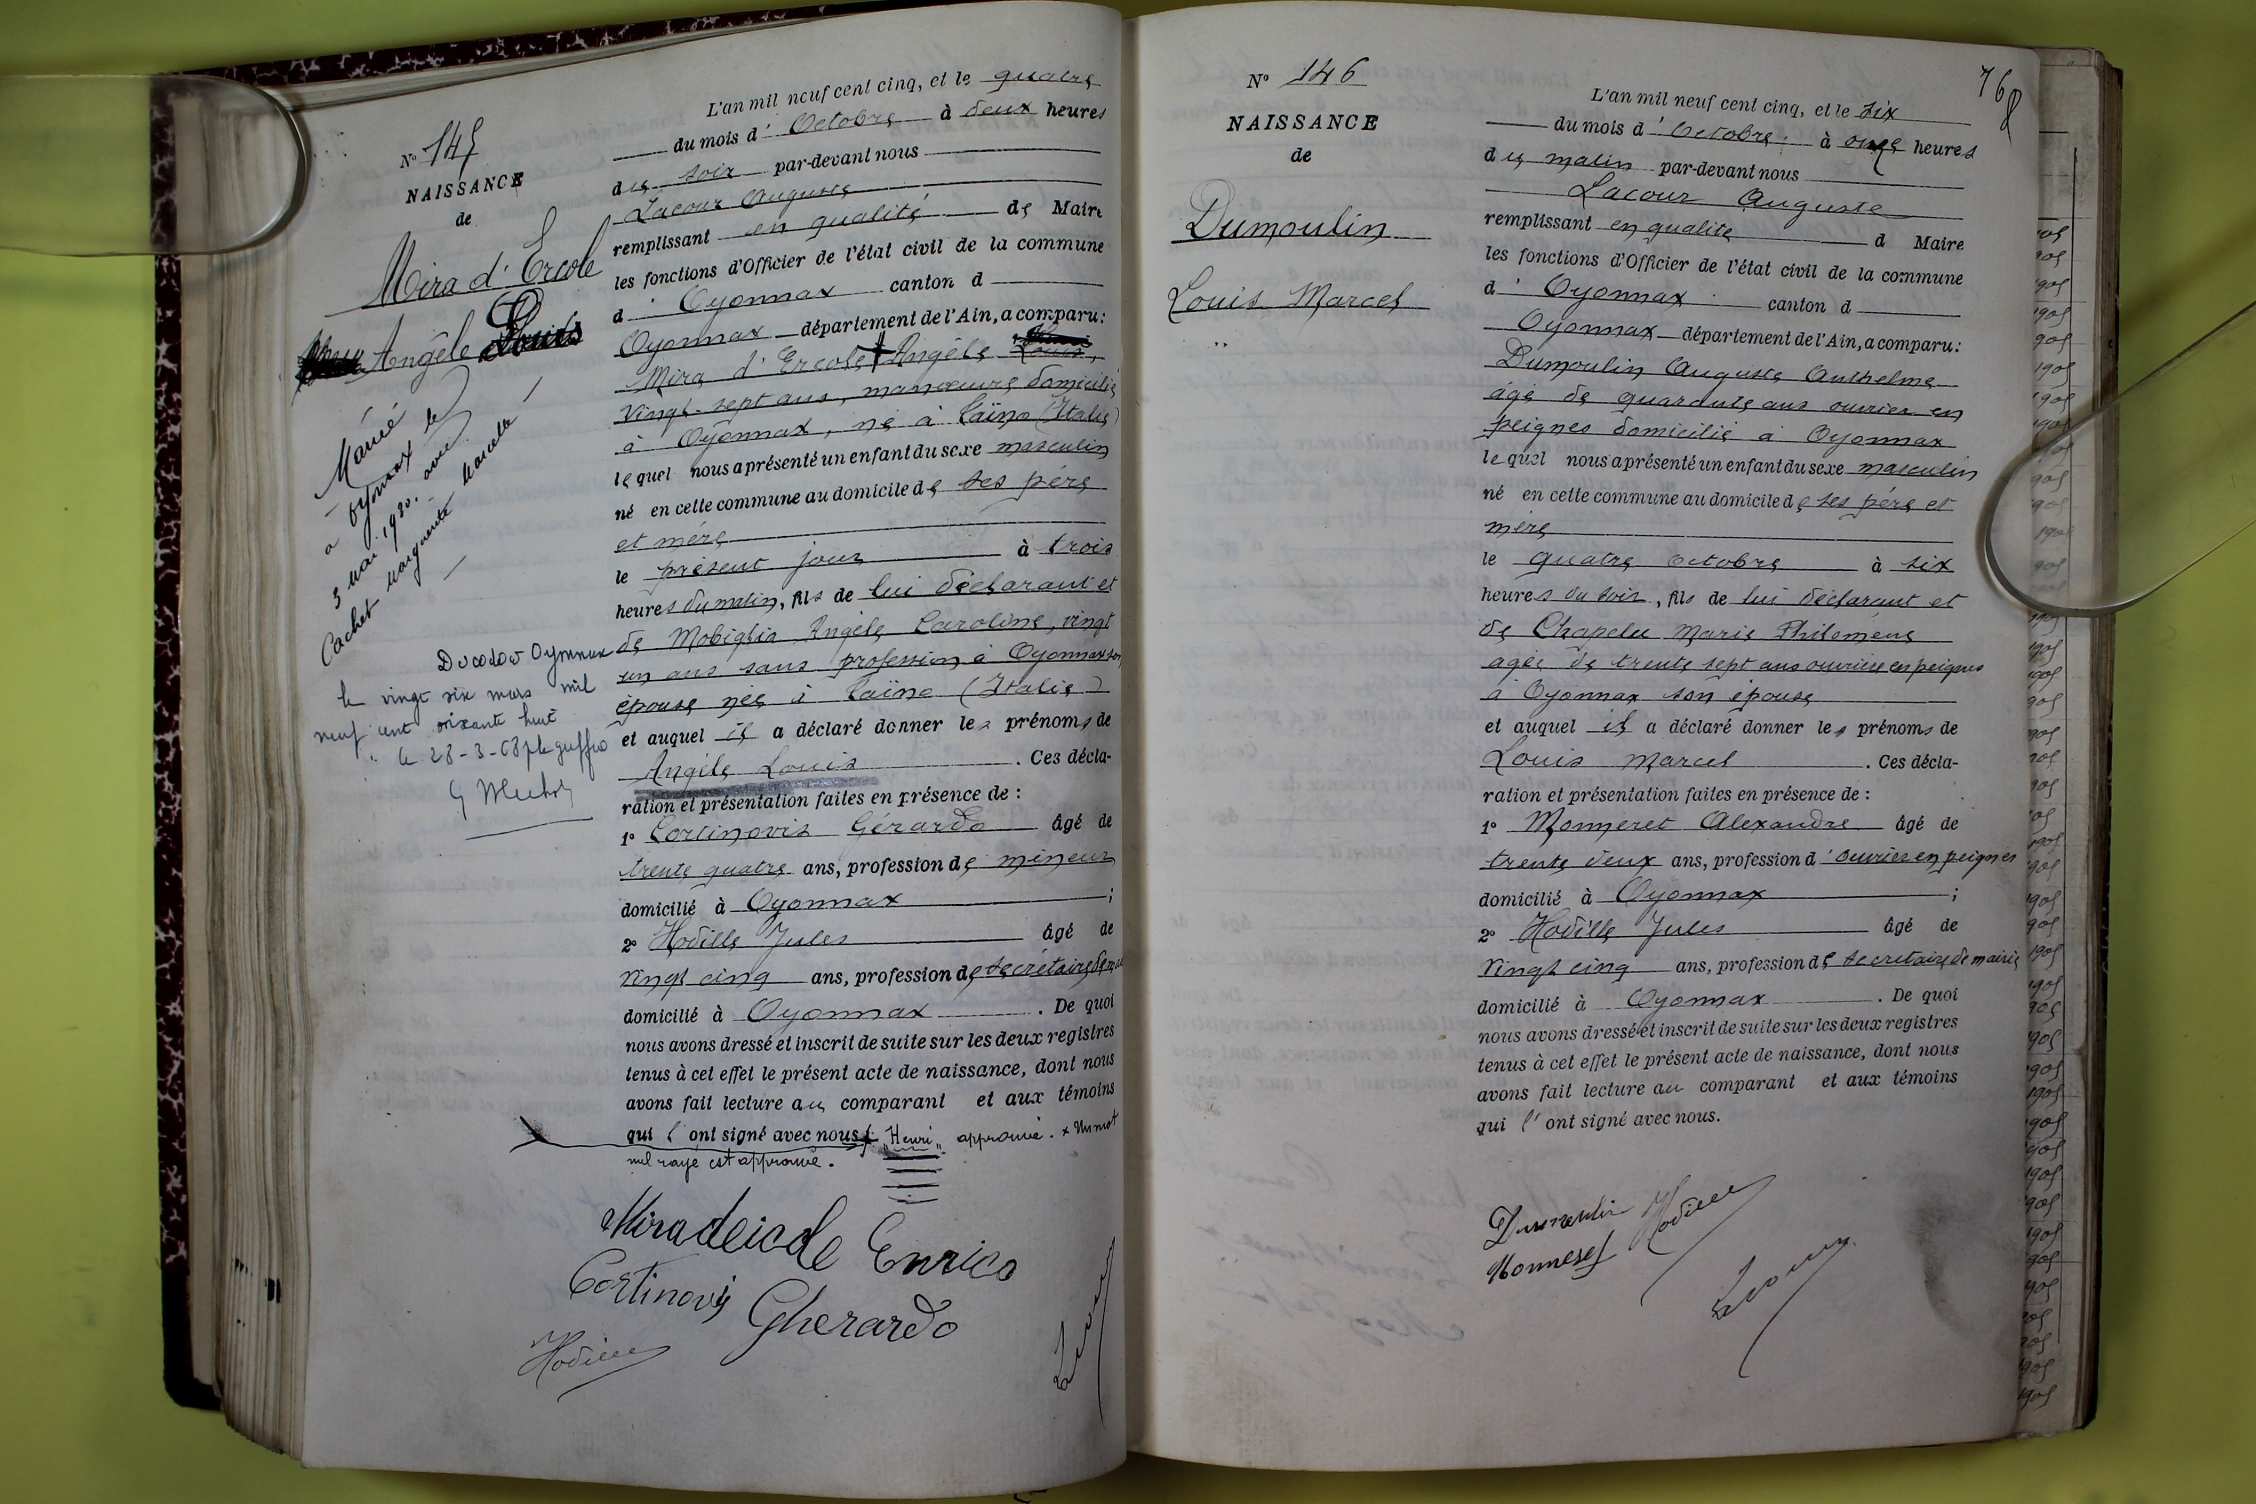 N° 145
NAISSANCE
de
Mira d'Ercole
Angèle Louis
Marié
à Oyonnax le
3 mai 1930. avec
Cachet Marguerite Marcelle
Oyonnax
le vingt six mars mil
neuf cent soixante huit
le 28-3-68
L'an mil neuf cent cinq, et le quatre
du mois d'Octobre à deux heures
du soir par-devant nous
Lacour Auguste
remplissant en qualité de Maire
les fonctions d'Officier de l'état civil de la commune
d'Oyonnax canton d
Oyonnax département de l'Ain, a comparu:
Mira d'Ercole Angèle
vingt-sept ans, manœuvre domicilié
à Oyonnax, né à (Italie)
lequel nous a présenté un enfant du sexe masculin
né en cette commune au domicile de ses père
et mère
le présent jour à trois
heures du matin, fils de lui déclarant et
de Mobiglia Angèle Caroline, vingt
un ans sans profession à Oyonnax son
épouse née à (Italie)
et auquel il a déclaré donner les prénoms de
Angèle Louis . Ces décla-
ration et présentation faites en présence de :
1° Cortinovis Gérardo âgé de
trente quatre ans, profession de mineur
domicilié à Oyonnax ;
2° Hodille Jules âgé de
vingt cinq ans, profession de secrétaire de
domicilié à Oyonnax . De quoi
nous avons dressé et inscrit de suite sur les deux registres
tenus à cet effet le présent acte de naissance, dont nous
avons fait lecture au comparant et aux témoins
qui l'ont signé avec nous. "Henri" approuvé. x Un mot
nul rayé est approuvé.
Enrico
Cortinovis Gherardo
Hodille
Lacour
768
N° 146
NAISSANCE
de
Dumoulin
Louis Marcel
L'an mil neuf cent cinq, et le six
du mois d'Octobre à onze heures
du matin par-devant nous
Lacour Auguste
remplissant en qualité d Maire
les fonctions d'Officier de l'état civil de la commune
d'Oyonnax canton d
Oyonnax département de l'Ain, a comparu:
Dumoulin Auguste Anthelme
âgé de quarante ans ouvrier en
peignes domicilié à Oyonnax
lequel nous a présenté un enfant du sexe masculin
né en cette commune au domicile de ses père et
mère
le quatre octobre à six
heures du soir, fils de lui déclarant et
de Chapelu Marie Philomène
agée de trente sept ans ouvrière en peignes
à Oyonnax son épouse
et auquel il a déclaré donner les prénoms de
Louis Marcel . Ces décla-
ration et présentation faites en présence de :
1° Monneret Alexandre âgé de
trente deux ans, profession d'ouvrier en peignes
domicilié à Oyonnax ;
2° Hodille Jules âgé de
vingt cinq ans, profession de secretaire de mairie
domicilié à Oyonnax . De quoi
nous avons dressé et inscrit de suite sur les deux registres
tenus à cet effet le présent acte de naissance, dont nous
avons fait lecture au comparant et aux témoins
qui l'ont signé avec nous.
Dumoulin Hodille
Monneret
Lacour